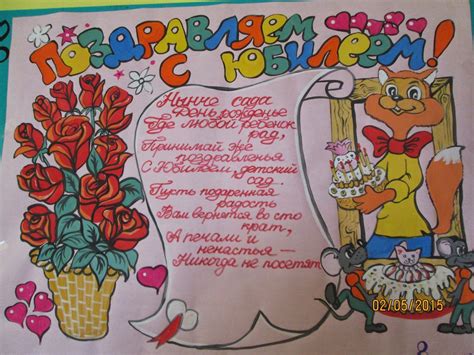 Поздравляем
с юбилеем!
Нынче сада
День рожденье
Где любой ребенок
рад,
Принимай же
поздравленья
С Юбилеем, детский
сад.
Пусть подаренная
радость
Вам вернется во сто
крат,
А печали и
ненастья —
Никогда не посетят
02/05/2015